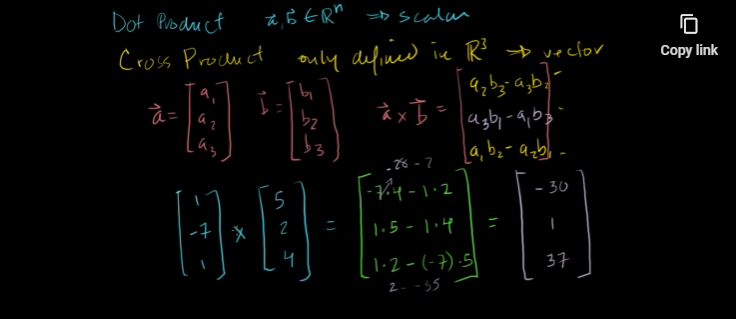 Dot Product a⃗, b⃗ ∈ ℝⁿ ⇒ scalar
Copy link
Cross Product only defined in ℝ³ ⇒ vector
a⃗ = [a₁ a₂ a₃] b⃗ = [b₁ b₂ b₃] a⃗ × b⃗ = [a₂b₃ - a₃b₂ a₃b₁ - a₁b₃ a₁b₂ - a₂b₁]
-28 - 2
[1 -7 1] × [5 2 4] = [-7·4 - 1·2 1·5 - 1·4 1·2 - (-7)·5] = [-30 1 37]
2 - -35